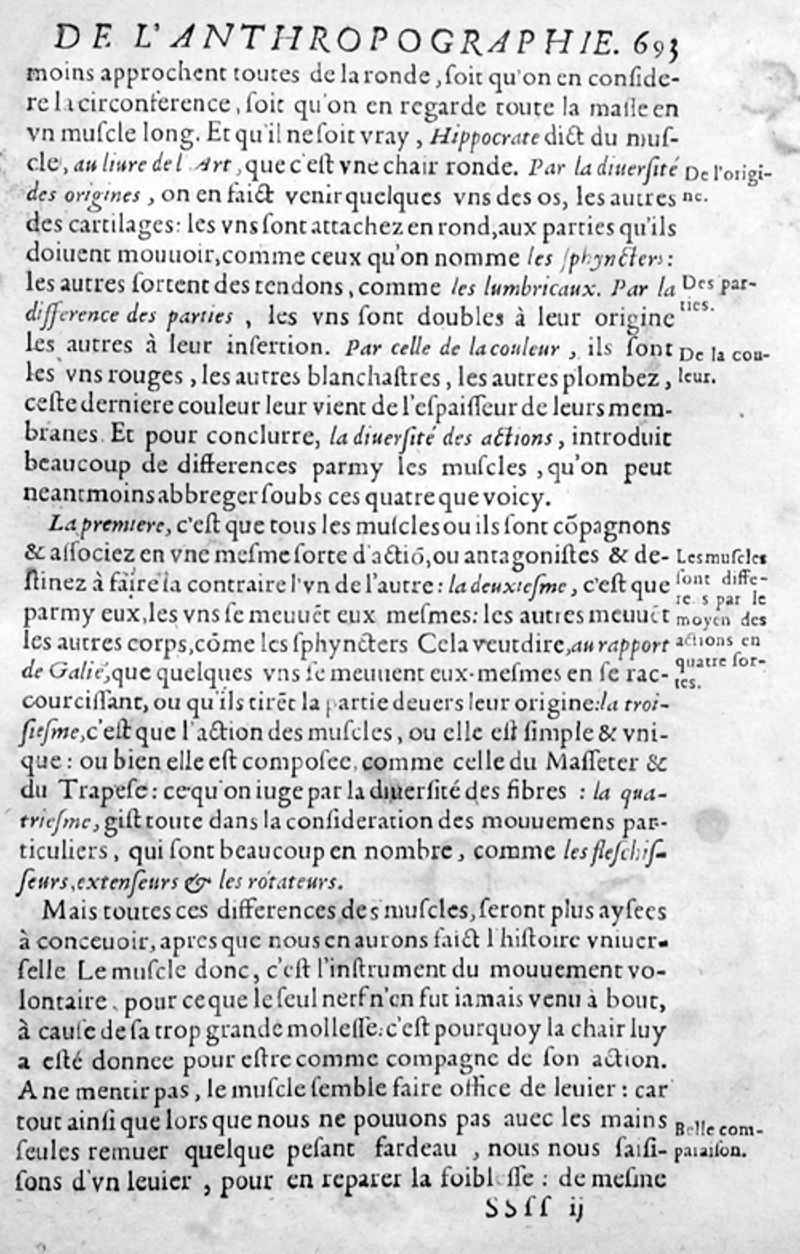 DE L'ANTHROPOGRAPHIE. 693
moins approchent toutes de la ronde, ſoit qu'on en conſide-
re la circonference, ſoit qu'on en regarde toute la maſſe en
vn muſcle long. Et qu'il ne ſoit vray, Hippocrate dict du muſ-
cle, au liure de l'Art, que c'eſt vne chair ronde. Par la diuerſité
des origines, on en faict venir quelques vns des os, les autres
des cartilages: les vns ſont attachez en rond, aux parties qu'ils
doiuent mouuoir, comme ceux qu'on nomme les ſphyncters:
les autres ſortent des tendons, comme les lumbricaux. Par la
difference des parties, les vns ſont doubles à leur origine
les autres à leur inſertion. Par celle de la couleur, ils ſont
les vns rouges, les autres blanchaſtres, les autres plombez,
ceſte derniere couleur leur vient de l'eſpaiſſeur de leurs mem-
branes. Et pour conclurre, la diuerſité des actions, introduit
beaucoup de differences parmy les muſcles, qu'on peut
neantmoins abbreger ſoubs ces quatre que voicy.
La premiere, c'eſt que tous les muſcles ou ils ſont cõpagnons
& aſſociez en vne meſme ſorte d'actiõ, ou antagoniſtes & de-
ſtinez à faire la contraire l'vn de l'autre: la deuxieſme, c'eſt que
parmy eux, les vns ſe meuuẽt eux meſmes: les autres meuuẽt
les autres corps, cõme les ſphyncters Cela veut dire, au rapport
de Galiẽ, que quelques vns ſe meuuent eux-meſmes en ſe rac-
courciſſant, ou qu'ils tirẽt la partie deuers leur origine: la troi-
ſieſme, c'eſt que l'action des muſcles, ou elle eſt ſimple & vni-
que: ou bien elle eſt compoſee, comme celle du Maſſeter &
du Trapeſe: ce qu'on iuge par la diuerſité des fibres : la qua-
trieſme, giſt toute dans la conſideration des mouuemens par-
ticuliers, qui ſont beaucoup en nombre, comme les fleſchiſ-
ſeurs, extenſeurs & les rotateurs.
Mais toutes ces differences des muſcles, ſeront plus ayſees
à conceuoir, apres que nous en aurons faict l'hiſtoire vniuer-
ſelle Le muſcle donc, c'eſt l'inſtrument du mouuement vo-
lontaire, pour ce que le ſeul nerf n'en fut iamais venu à bout,
à cauſe de ſa trop grande molleſſe: c'eſt pourquoy la chair luy
a eſté donnee pour eſtre comme compagne de ſon action.
A ne mentir pas, le muſcle ſemble faire office de leuier: car
tout ainſi que lors que nous ne pouuons pas auec les mains
ſeules remuer quelque peſant fardeau, nous nous ſaiſi-
ſons d'vn leuier, pour en reparer la foibleſſe: de meſme
SSſſ ij
De l'origi-
ne.
Des par-
ties.
De la cou-
leur.
Les muſcles
ſont diffe-
rens par le
moyen des
actions en
quatre ſor-
tes.
Belle com-
paraiſon.